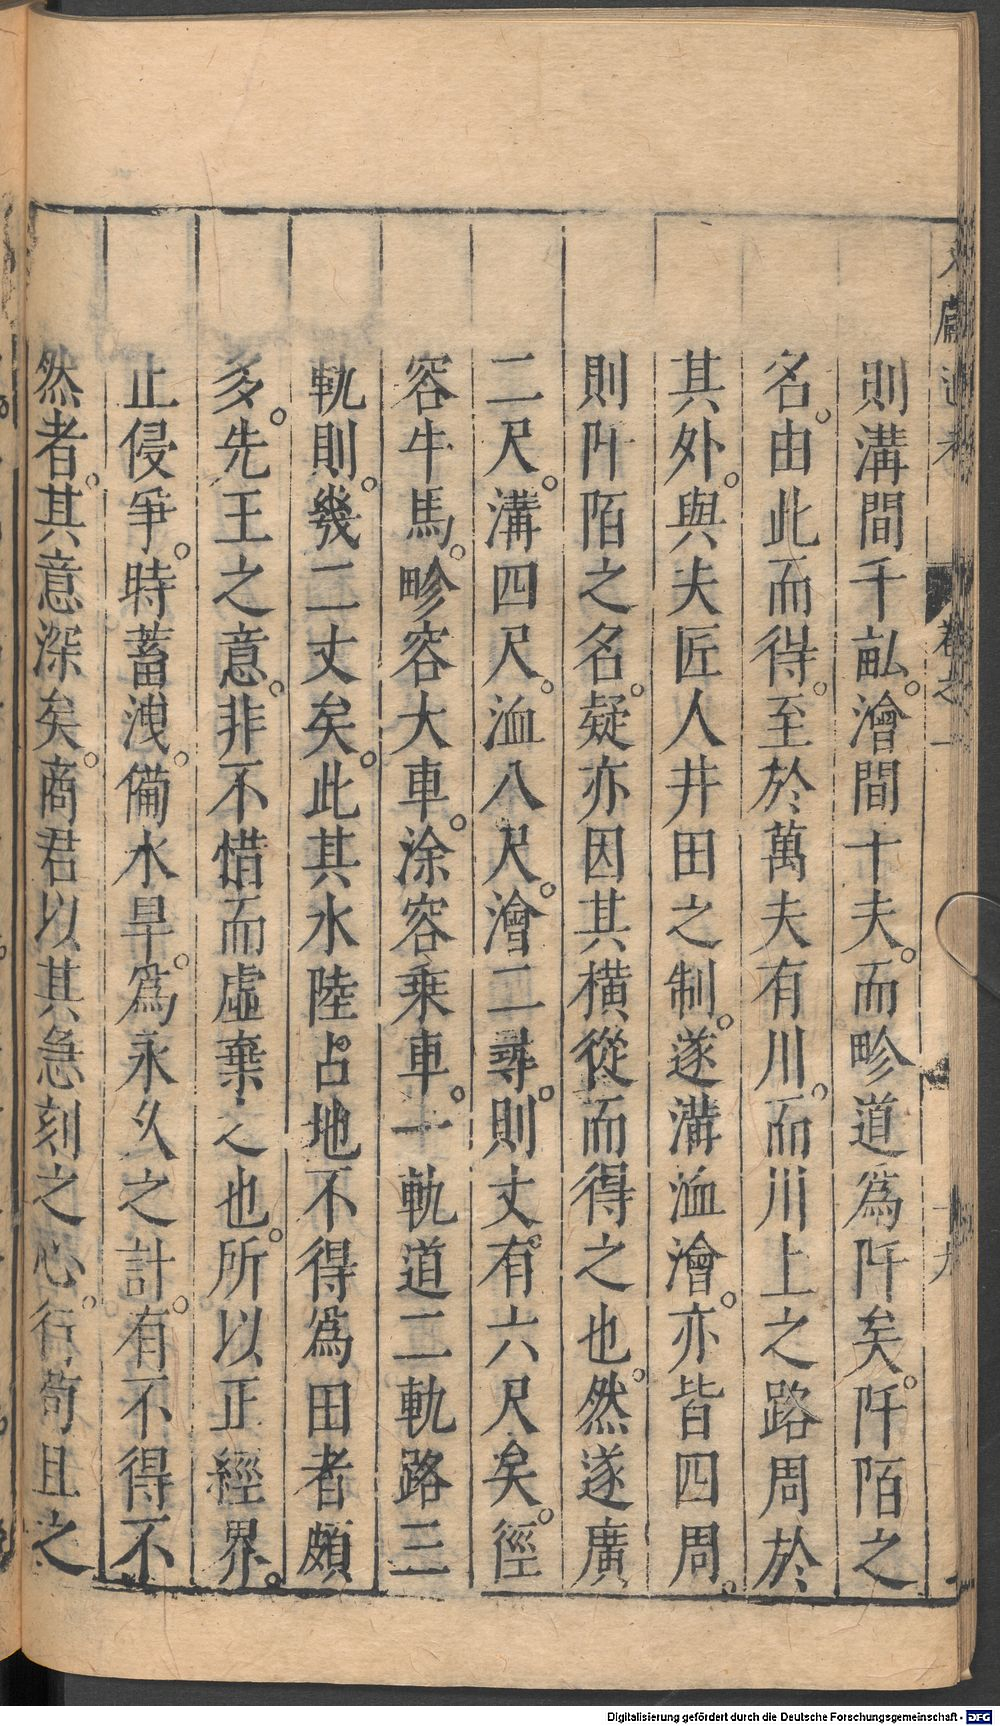 則溝間千畝。澮間十夫。而畛道爲阡矣。阡陌之
名。由此而得。至於萬夫有川。而川上之路周於
其外。與夫匠人井田之制。遂溝洫澮。亦皆四周。
則阡陌之名。疑亦因其橫從而得之也。然遂廣
二尺。溝四尺。洫八尺。澮二尋。則丈有六尺矣。徑
容牛馬。畛容大車。涂容乗車。一軌道二軌路三
軌則。幾二丈矣。此其水陸占地不得爲田者頗
多。先王之意。非不惜而虛棄之也。所以正經界。
止侵爭。時蓄洩。備水旱。爲永久之計。有不得不
然者。其意深矣。商君以其急刻之心。行苟且之
卷之一
Digitalisierung gefördert durch die Deutsche Forschungsgemeinschaft - DFG